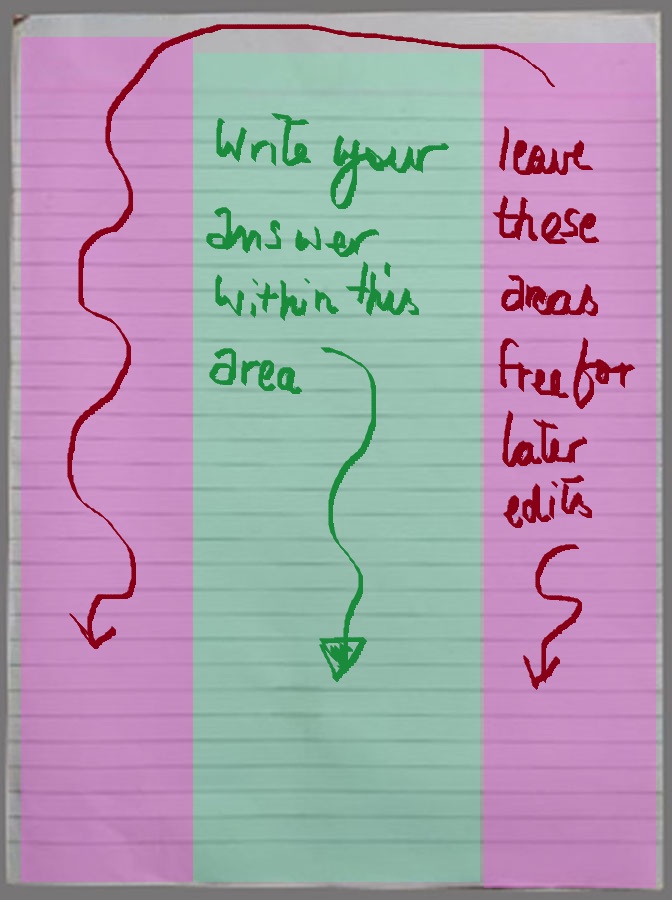 Write your
answer
within this
area
leave
these
areas
free for
later
edits